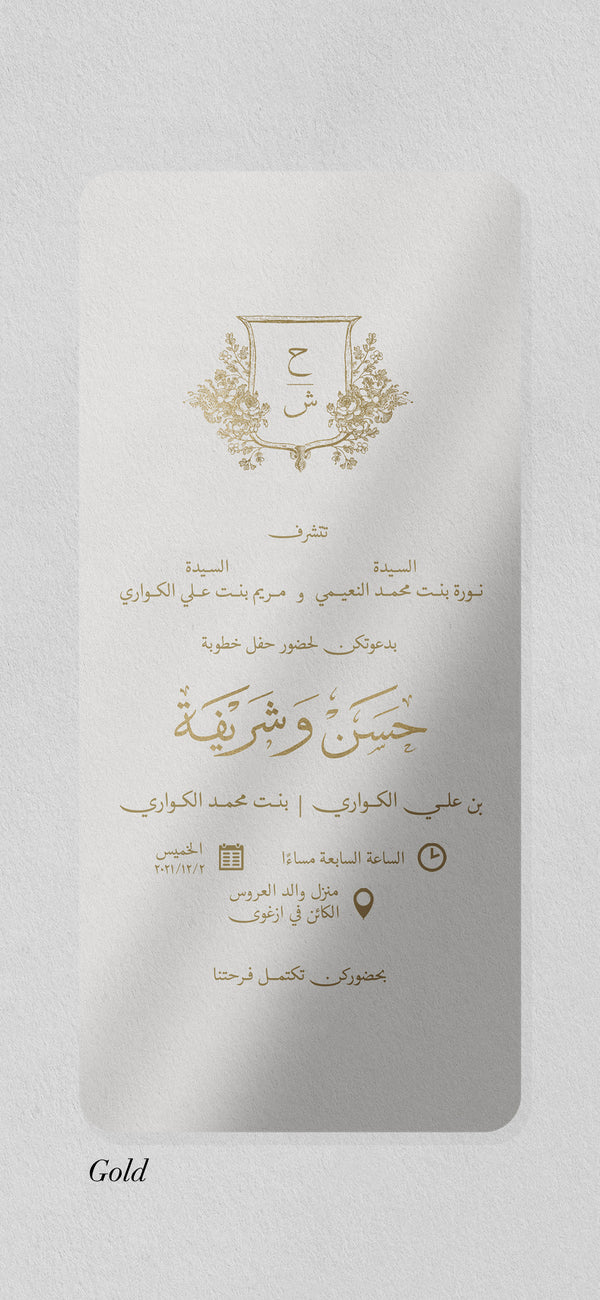 ح
ش
تتشرف
السيدة السيدة
نورة بنت محمد النعيمي و مريم بنت علي الكواري
بدعوتكن لحضور حفل خطوبة
حَسَن وَشَريفَة
بن علي الكواري | بنت محمد الكواري
الساعة السابعة مساءًا
الخميس
٢٠٢١/١٢/٢
منزل والد العروس
الكائن في ازغوى
بحضوركن تكتمل فرحتنا
Gold